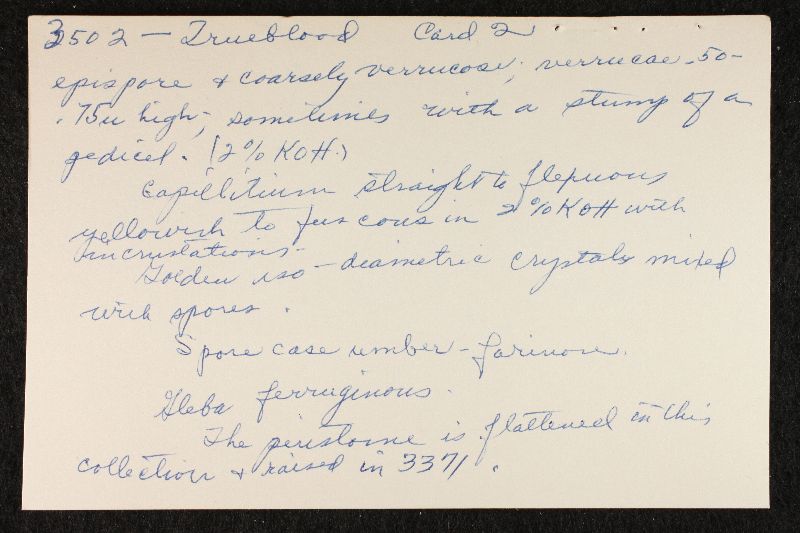 3502 - Trueblood Card 2
epispore & coarsely verrucose; verrucae .50-
.75u high; sometimes with a stump of a
pedicel. (2% KOH.)
Capillitium straight to flexuous
yellowish to fuscous in 2% KOH with
incrustations.
Golden iso-diametric crystals mixed
with spores.
Spore case umber - farinose.
Gleba ferruginous.
The peristome is flattened in this
collection & raised in 3371.